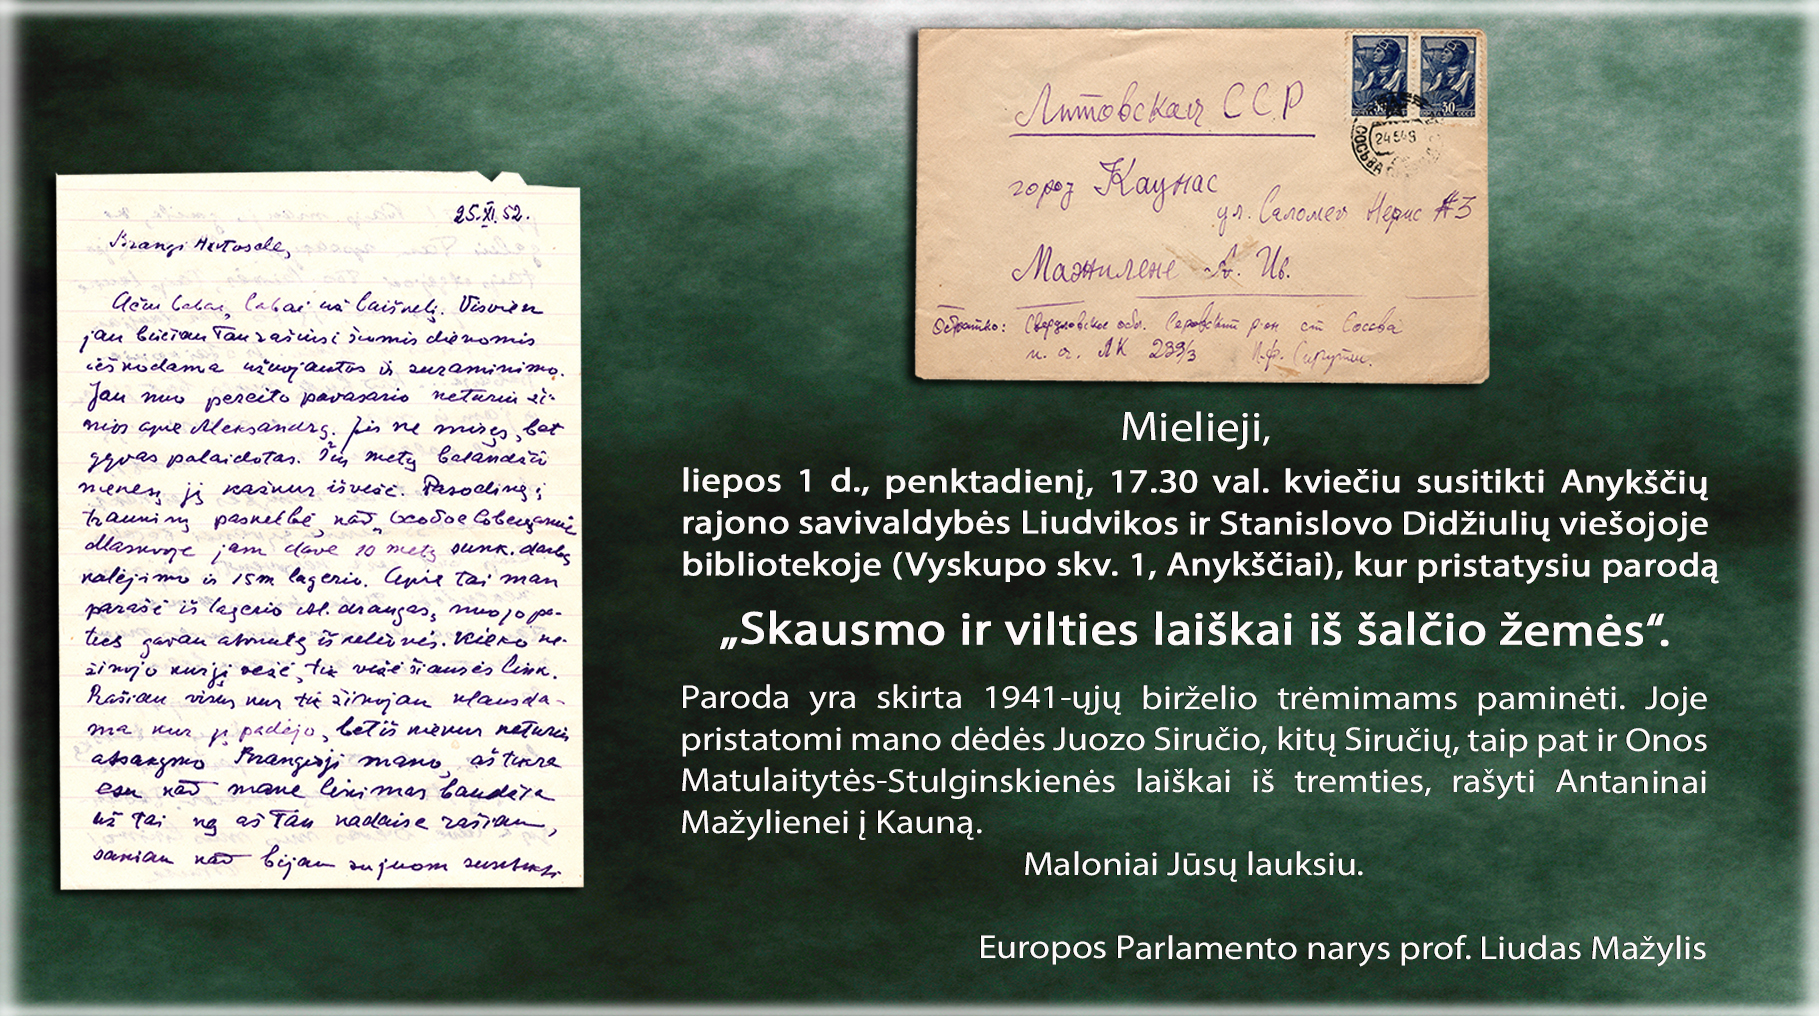 25.XI.52.
Brangi Antosele,
Ačiu labai, labai už laiškelį. Visvien
jau bučiau Tau rašiusi šiomis dienomis
ieškodama užuojautos ir suraminimo.
Jau nuo pereito pavasario neturiu ži-
nios apie Aleksandrą. Jis ne miręs, bet
gyvas palaidotas. Šių metų balandžio
mėnesį jį kažkur išvežė. Pasodinę į
traukinį paskelbė, kad „Особое Совещание
Maskvoje jam davė 10 metų sunk. darbų
kalėjimo ir 15 m lagerio. Apie tai man
parašė iš lagerio Al. draugas, nuo jo pa-
ties gavau atvirutę iš kelionės. Kieno ne-
žinojo kur jį vežė, tik vežė šiaurės link.
Rašiau visur kur tik žinojau klausda-
ma kur jį padėjo, bet iš niekur neturiu
atsakymo Brangioji mano, aš tikra
esu kad mane likimas baudžia
už tai ką aš Tau kadaise rašiau,
sakiau kad bijau su juom susitikti
Литовская ССР
город Каунас
ул. Саломеи Нерис #3
Мажилене А. Ив.
Обратно: Свердловская обл. Серовский р-он ст Сосьва
п. я. АК 239/3 П.Ф. Сирути
30
30
ПОЧТА СССР
24 5 49
СОСЬВА
Mielieji,
liepos 1 d., penktadienį, 17.30 val. kviečiu susitikti Anykščių
rajono savivaldybės Liudvikos ir Stanislovo Didžiulių viešojoje
bibliotekoje (Vyskupo skv. 1, Anykščiai), kur pristatysiu parodą
„Skausmo ir vilties laiškai iš šalčio žemės“.
Paroda yra skirta 1941-ųjų birželio trėmimams paminėti. Joje
pristatomi mano dėdės Juozo Siručio, kitų Siručių, taip pat ir Onos
Matulaitytės-Stulginskienės laiškai iš tremties, rašyti Antaninai
Mažylienei į Kauną.
Maloniai Jūsų lauksiu.
Europos Parlamento narys prof. Liudas Mažylis